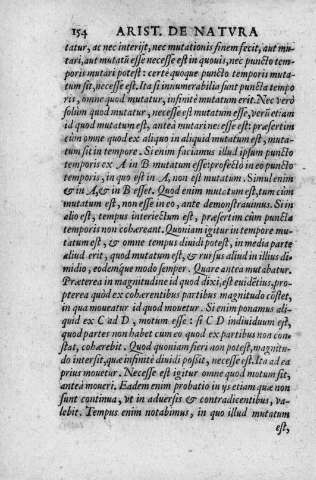 154 ARIST. DE NATVRA
tatur, ac nec interijt, nec mutationis finem fecit, aut mu-
tari, aut mutatũ esse necesse est in quouis, nec puncto tem-
poris mutari potest: certè quoque puncto temporis muta-
tum sit, necesse est. Ita si innumerabilia sunt pũcta tempo
ris, omne quod mutatur, infinitè mutatum erit. Nec verò
solùm quod mutatur, necesse est mutatum esse, verùetiam
id quod mutatum est, anteà mutari necesse est: præsertim
cùm omne quod ex aliquo in aliquid mutatum est, muta-
tum sit in tempore. Si enim faciamus illud ipsum puncto
temporis ex A in B mutatum esse: profectò in eo puncto
temporis, in quo est in A, non est mutatum. Simul enim
& in A, & in B esset. Quod enim mutatum est, tum cùm
mutatum est, non esse in eo, ante demonstrauimus. Si in
alio est, tempus interiectum est, præsertim cùm puncta
temporis non cohæreant. Quoniam igitur in tempore mu-
tatum est, & omne tempus diuidi potest, in media parte
aliud erit, quod mutatum est, & rursus aliud in illius di-
midio, eodemque modo semper. Quare antea mutabatur.
Præterea in magnitudine id quod dixi, est euidẽtius, pro-
pterea quòd ex cohærentibus partibus magnitudo cõstet,
in qua moueatur id quod mouetur. Si enim ponamus ali-
quid ex C ad D, motum esse: si C D indiuiduum est,
quod partes non habet cum eo quod ex partibus non con-
stat, cohærebit. Quod quoniam fieri non potest, magnitu-
do intersit, quæ infinitè diuidi possit, necesse est. Ita ad ea
prius mouetur. Necesse est igitur omne quod motum sit,
anteà moueri. Eadem enim probatio in ijs etiam quæ non
sunt continua, vt in aduersis & contradicentibus, va-
lebit. Tempus enim notabimus, in quo illud mutatum
est,